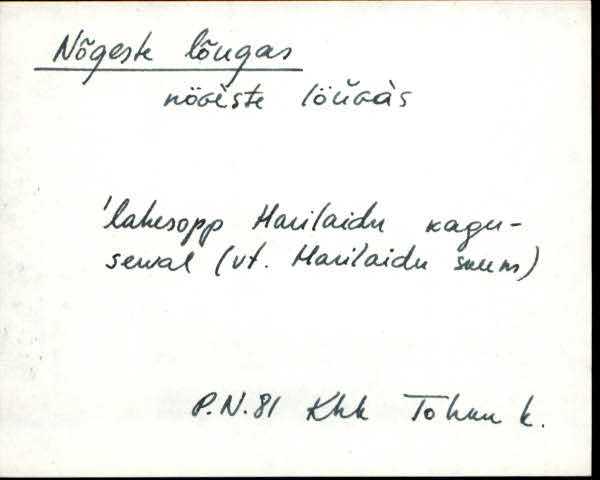 Nõgeste lõugas
nöɢèste löŭɢàs
'lahesopp Harilaidu kagu-
serval (vt. Harilaidu suum)
P.N.81 Khk Tohku k.